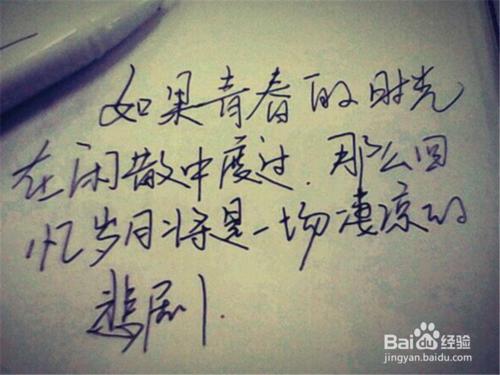 如果青春的时光
在闲散中度过.那么回
忆岁月将是一场凄凉的
悲剧.
Baidu经验
jingyan.baidu.com